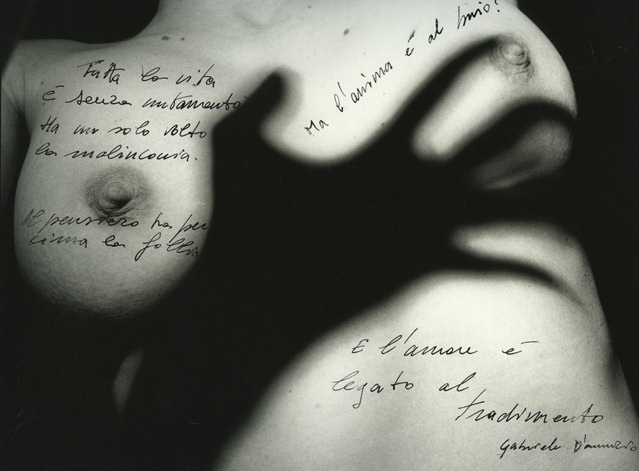 Tutta la vita
è senza mutamento
Ha un solo volto
la malinconia.
Il pensiero ha per
cima la follia
Ma l'anima è al buio?
E l'amore è
legato al
tradimento
Gabriele D'annunzio